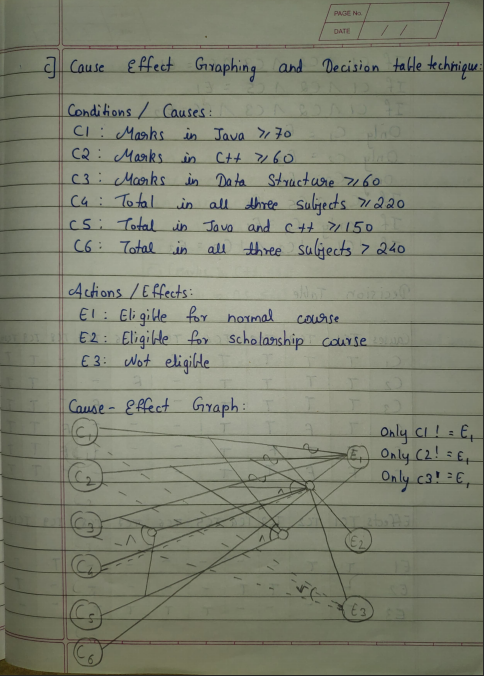 PAGE No.
DATE / /
C] Cause Effect Graphing and Decision table technique:
Conditions / Causes:
C1 : Marks in Java ≥ 70
C2 : Marks in C++ ≥ 60
C3 : Marks in Data Structure ≥ 60
C4 : Total in all three subjects ≥ 220
C5 : Total in Java and C++ ≥ 150
C6 : Total in all three subjects > 240
Actions / Effects:
E1 : Eligible for normal course
E2 : Eligible for scholarship course
E3 : Not eligible
Cause - Effect Graph:
C1
Only C1! = E1
E1
Only C2! = E1
C2
Only C3! = E1
^
C3
^
^
E2
C4
C5
E3
C6